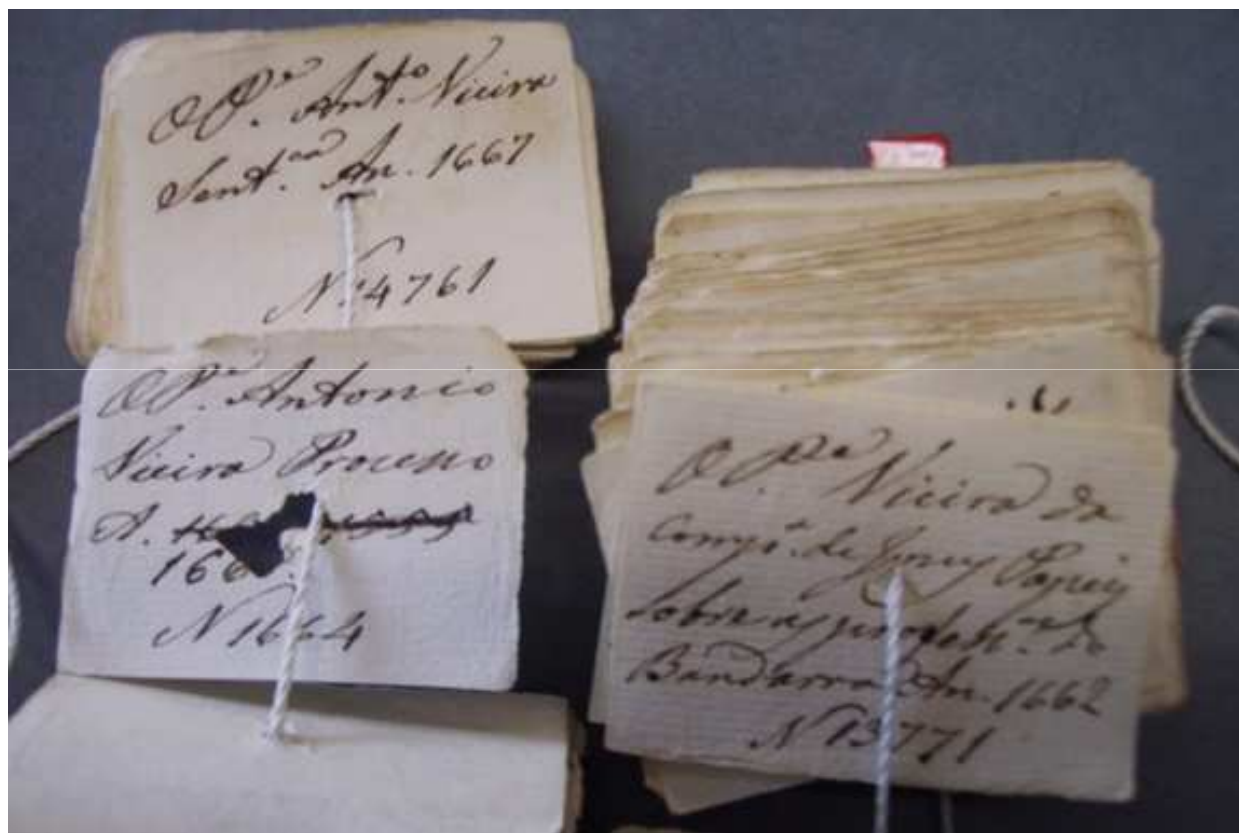 O P.e Ant.o Vieira
Sent.ca An. 1667
N. 4761
O P.e Antonio
Vieira Processo
A.
166
N 1664
O P.e Vieira da
Comp.a de Jesus Papeis
sobre as
Bandarra An. 1662
N 13771